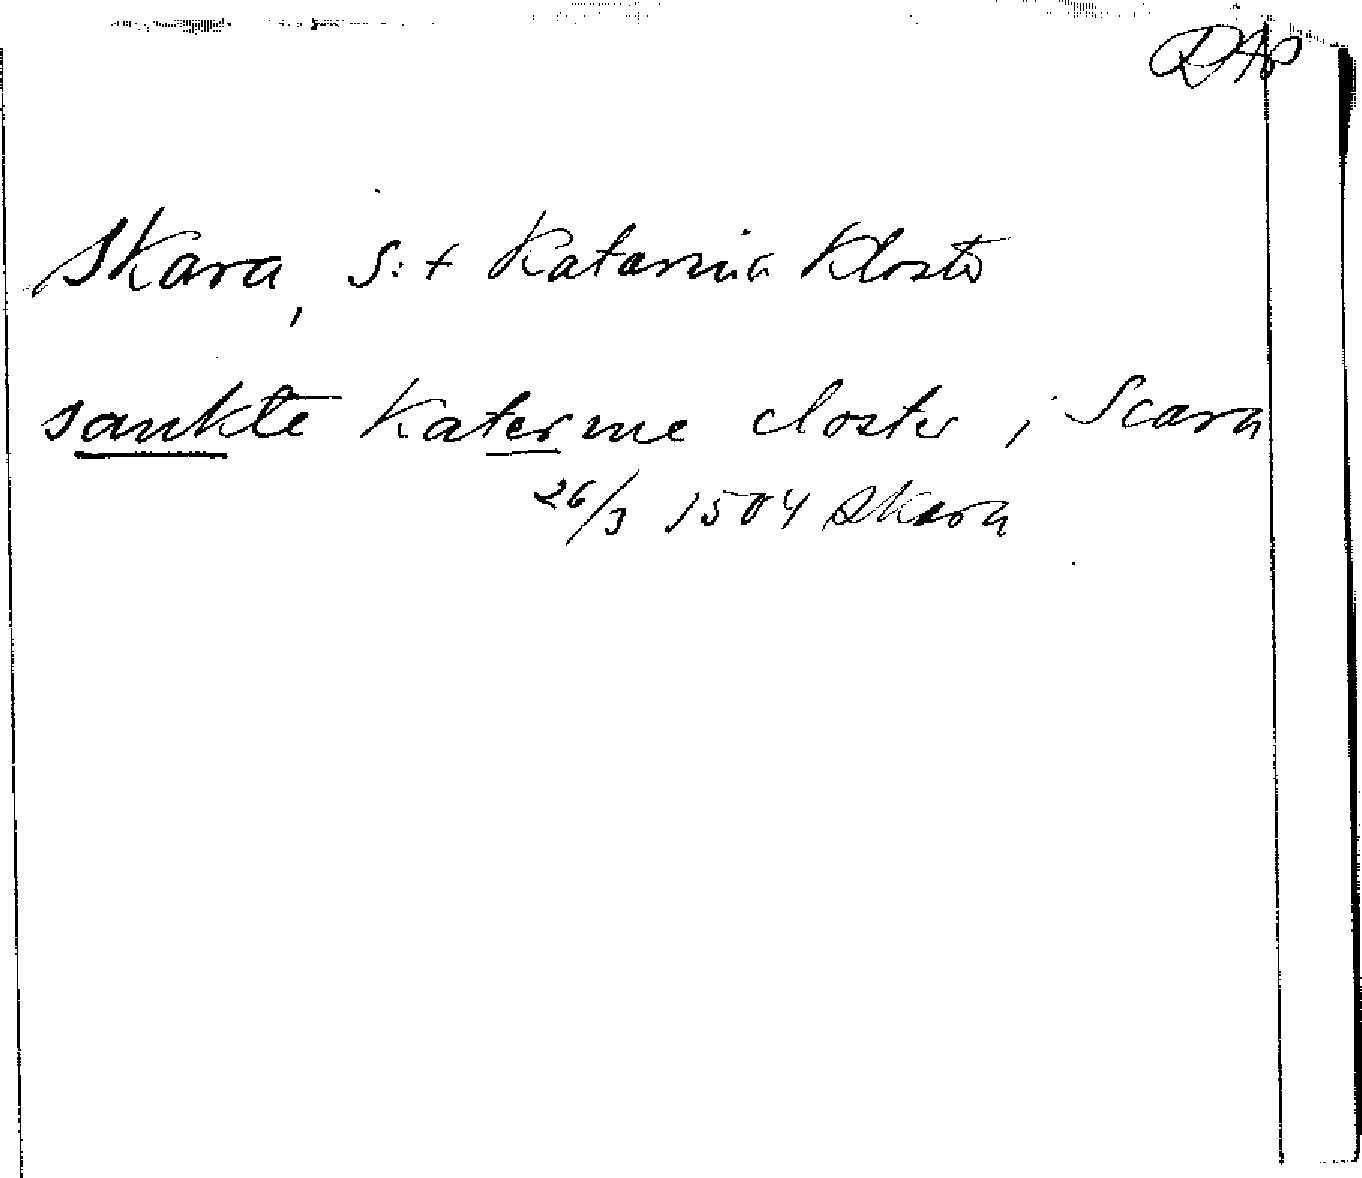 DAp
Skara, S:t Katarina kloster
sankte Katerine closter i Scara
26/3 1504 Skara